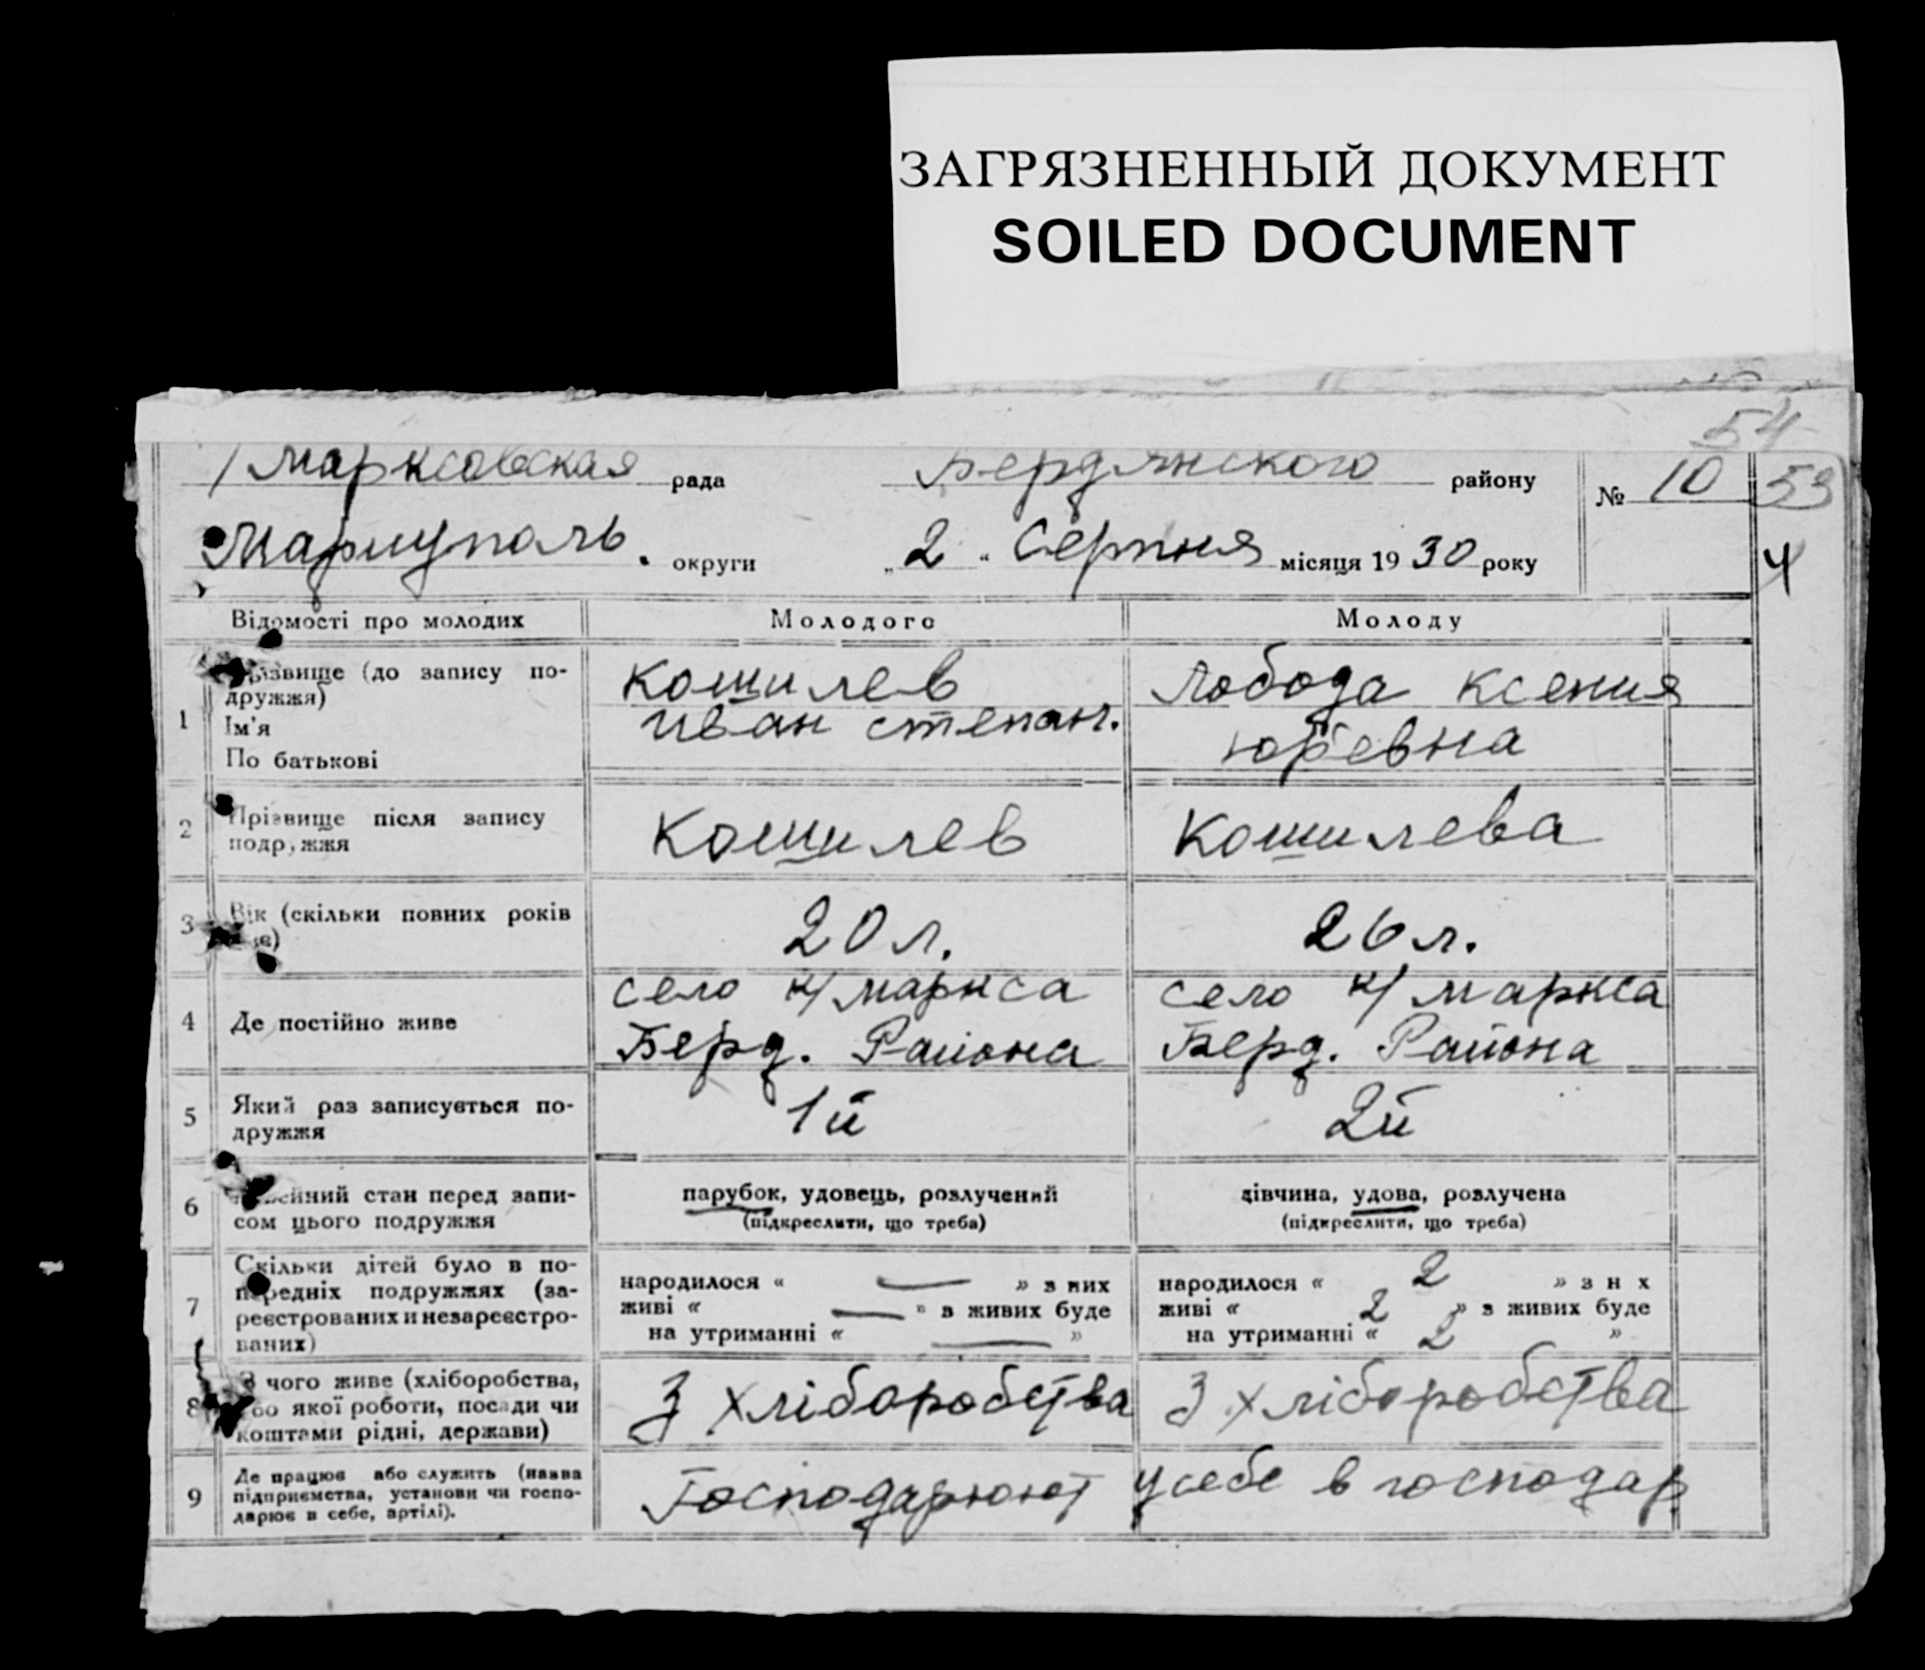 ЗАГРЯЗНЕННЫЙ ДОКУМЕНТ
SOILED DOCUMENT
54
Марксовская рада Бердянского району № 10 53
Мариуполь. округи „2“ Серпня місяця 1930 року 4
Відомості про молодих Молодого Молоду
1 Прізвище (до запису по-
дружжя)
Ім'я
По батькові
Кошилев
Иван степан.
Лобода Ксения
Юрьевна
2 Прізвище після запису
подружжя
Кошилев
Кошилева
3 Вік (скільки повних років
має)
20 л.
26 л.
4 Де постійно живе
село К/маркса
Берд. Района
село К/маркса
Берд. Района
5 Який раз записується по-
дружжя
1й
2й
6 Сімейний стан перед запи-
сом цього подружжя
парубок, удовець, розлучений
(підкреслити, що треба)
дівчина, удова, розлучена
(підкреслити, що треба)
7 Скільки дітей було в по-
передніх подружжях (за-
реєстрованих и незареєстро-
ваних)
народилося « — » з них
живі « — » з живих буде
на утриманні « — »
народилося « 2 » з н х
живі « 2 » з живих буде
на утриманні « 2 »
8 З чого живе (хліборобства,
або якої роботи, посади чи
коштами рідні, держави)
З хліборобства
З хліборобства
9 Де працює або служить (назва
підприємства, установи чи госпо-
дарює в себе, артілі).
Господарюют у себе в господар